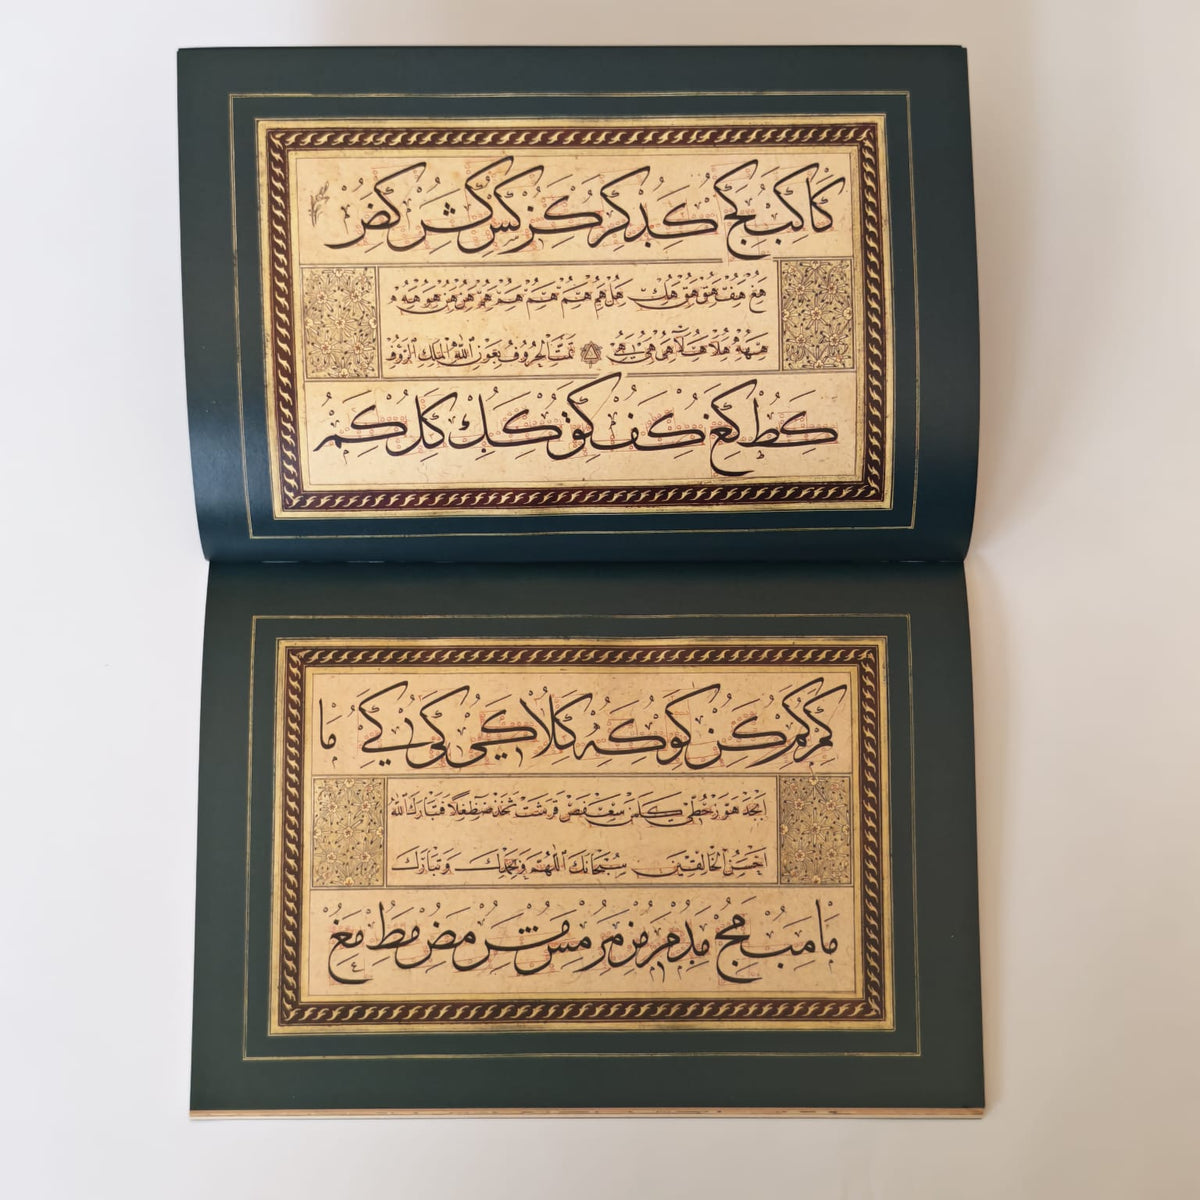 كا كب كج كد كر كز كس كش كض
هغ هف هق هك هل هم هم هم هن هو هه
ههه هلا هلا هى هى تمت الحروف بعون الله الملك الرؤف
كط كغ كف كق كك كل كم
كم كم كن كو كه كلا كي كى كے ما
ابجد هوز حطي كلمن سعفص قرشت ثخذ ضظغلا فتبارك الله
احسن الخالقين سبحانك اللهم وبحمدك وتبارك
ما مب مج مد مر مز مر مس مش مض مط مغ